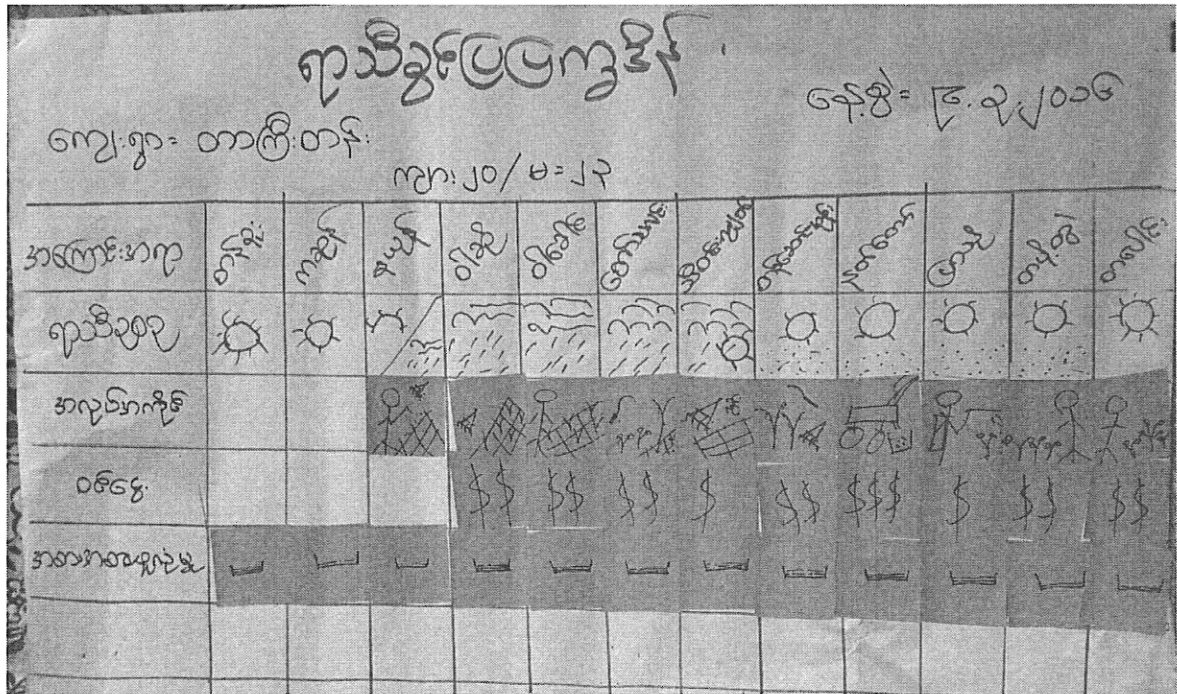 ရာသီခွင်ပြပြက္ခဒိန်
နေ့စွဲ= ၉.၃.၂၀၁၆
ကျေးရွာ= တာကြီးတန်း
ကျား၂၀/မ=၂၃
အကြောင်းအရာ တန်ခူး ကဆုန် နယုန် ဝါဆို ဝါခေါင် တော်သလင်း သီတင်းကျွတ် တန်ဆောင်မုန်း နတ်တော် ပြာသို တပို့တွဲ တပေါင်း
ရာသီဥတု
အလုပ်အကိုင်
ဝင်ငွေ $$ $$ $$ $ $$ $$$ $ $$ $$